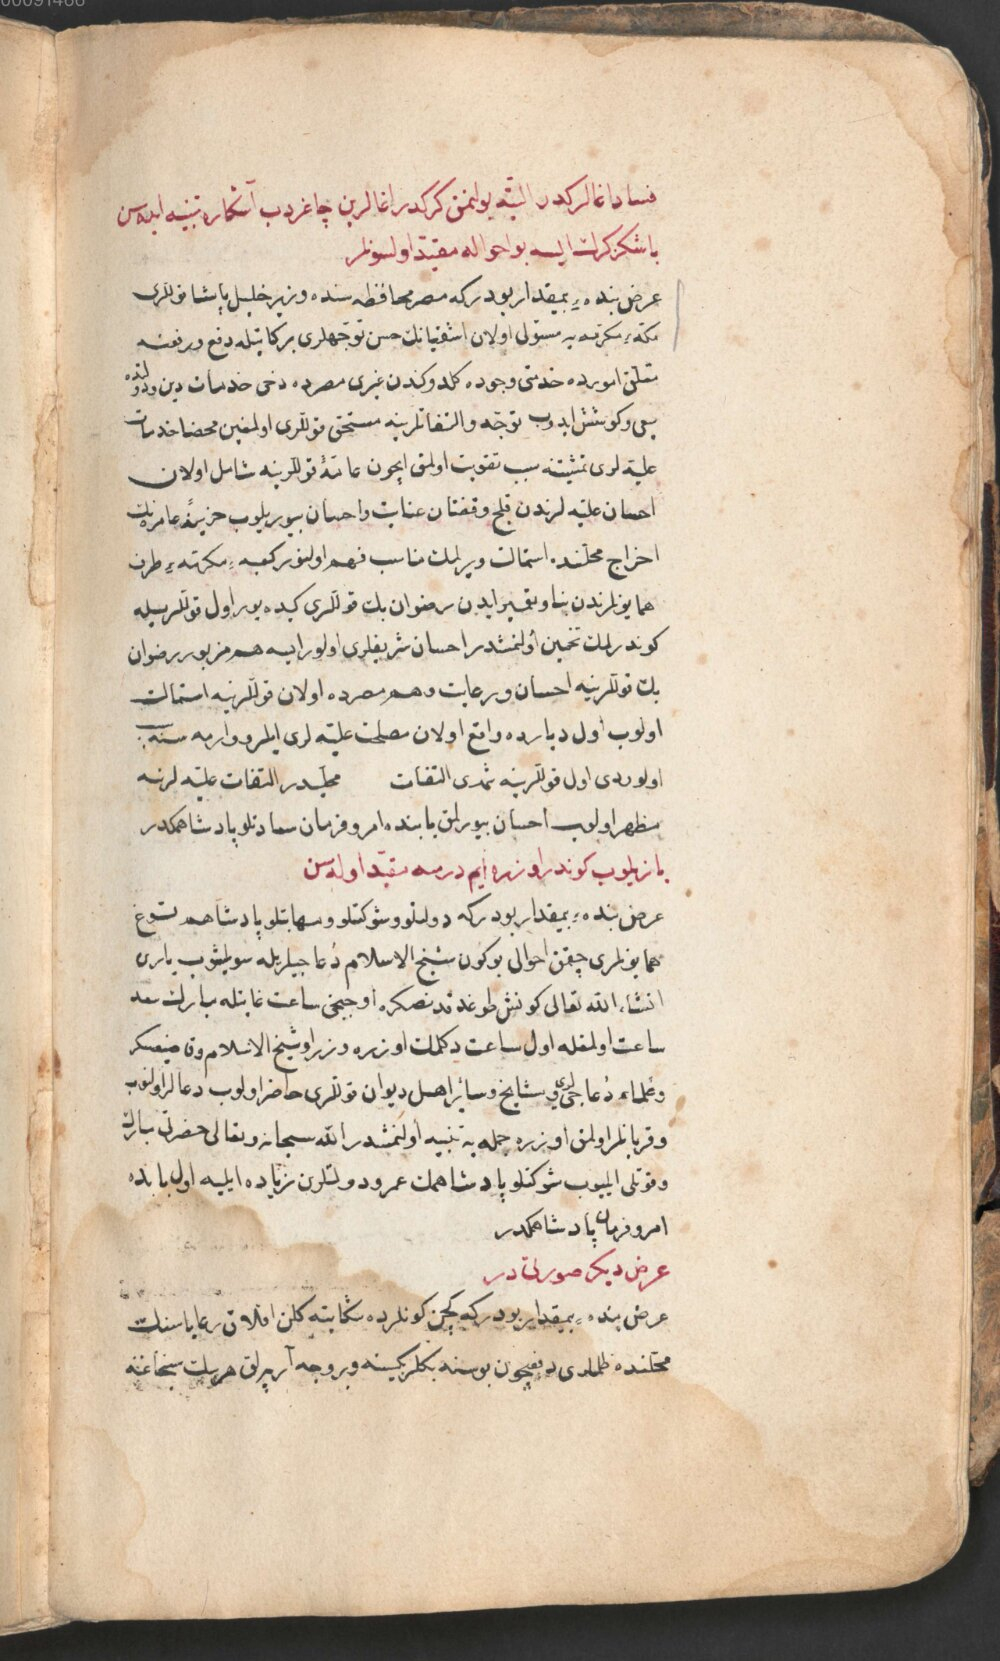 00091486
فساد اغالركدر البته بولنمق كركدر اغالرين چاغردب آشكاره تنبيه ايده سن
باشكز كرك ايسه بو احواله مقيد اولسونلر
عرض بنده ء بيمقدار بودركه مصر محافظه سنده وزير خليل پاشا قوللرى
مكهء مكرمه يه مستولى اولان اشقيانك حسن توجهلرى بركاتيله دفع ورفعنه
متعلق امورده خدمتى وجوده كلدوكندن غيرى مصرده دخى خدمات دين ودولتده
سعى وكوشش ايدوب توجه والتفاتلرينه مستحق قوللرى اولمغين محضا خدمات
عليه لرى تمشيتنه سبب تقويت اولمق ايچون عامهٔ قوللرينه شامل اولان
احسان عليه لرندن قلج وقفتان عنايت واحسان بيوريلوب خزينهٔ عامره نك
اخراج محلنده استمالت ويرلمك مناسب فهم اولنور كعبهء مكرمه ء طرف
همايونلرندن بنا وتعمير ايدن رضوان بك قوللرى كيده يور اول قوللريله
كوندرلمك تخمين اولنمشدر احسان شريفلرى اولور ايسه هم مزبور رضوان
بك قوللرينه احسان ورعايت وهم مصرده اولان قوللرينه استمالت
اولوب اول ديارده واقع اولان مصلحت عليه لرى ايلرو وارمه سنه سبب
اولوردى اول قوللرينه شمدى التفات محليدر التفات عليه لرنه
مظهر اولوب احسان بيورلمق بابنده امر وفرمان سعادتلو پادشاهمكدر
يازيلوب كوندر اوزره ايم درسه مقيد اوله سن
عرض بنده ء بيمقدار بودركه دولتلو وشوكتلو ومهابتلو پادشاهم توغ
همايونلرى چقمق احوالى بوكون شيخ الاسلام دعاجيلريله سويلشوب يارن
انشاء الله تعالى كونش طوغدقدنصكره اوچنجى ساعت غايتله مبارك سعد
ساعت اولمغله اول ساعت دكلمك اوزره وزرا وشيخ الاسلام وقاضيعسكر
وعلماء دعاجيلرى ومشايخ وسائر اهل ديوان قوللرى حاضر اولوب دعالر اولنوب
وقربانلر اولمق اوزره جمله يه تنبيه اولنمشدر الله سبحانه وتعالى حضرتى مبارك
وقوتلى ايليوب شوكتلو پادشاهمك عمر ودولتلرن زياده ايليه اول بابده
امر وفرمان پادشاهمكدر
عرض ديكر صورتى در
عرض بنده ء بيمقدار بودركه كچن كونلرده شكايته كلن افلاق رعاياسنك
محلنده ظلملرى دفعيچون بوسنه بكلربكيسنه وبروجه آرپه لق هرسك سنجاغنه